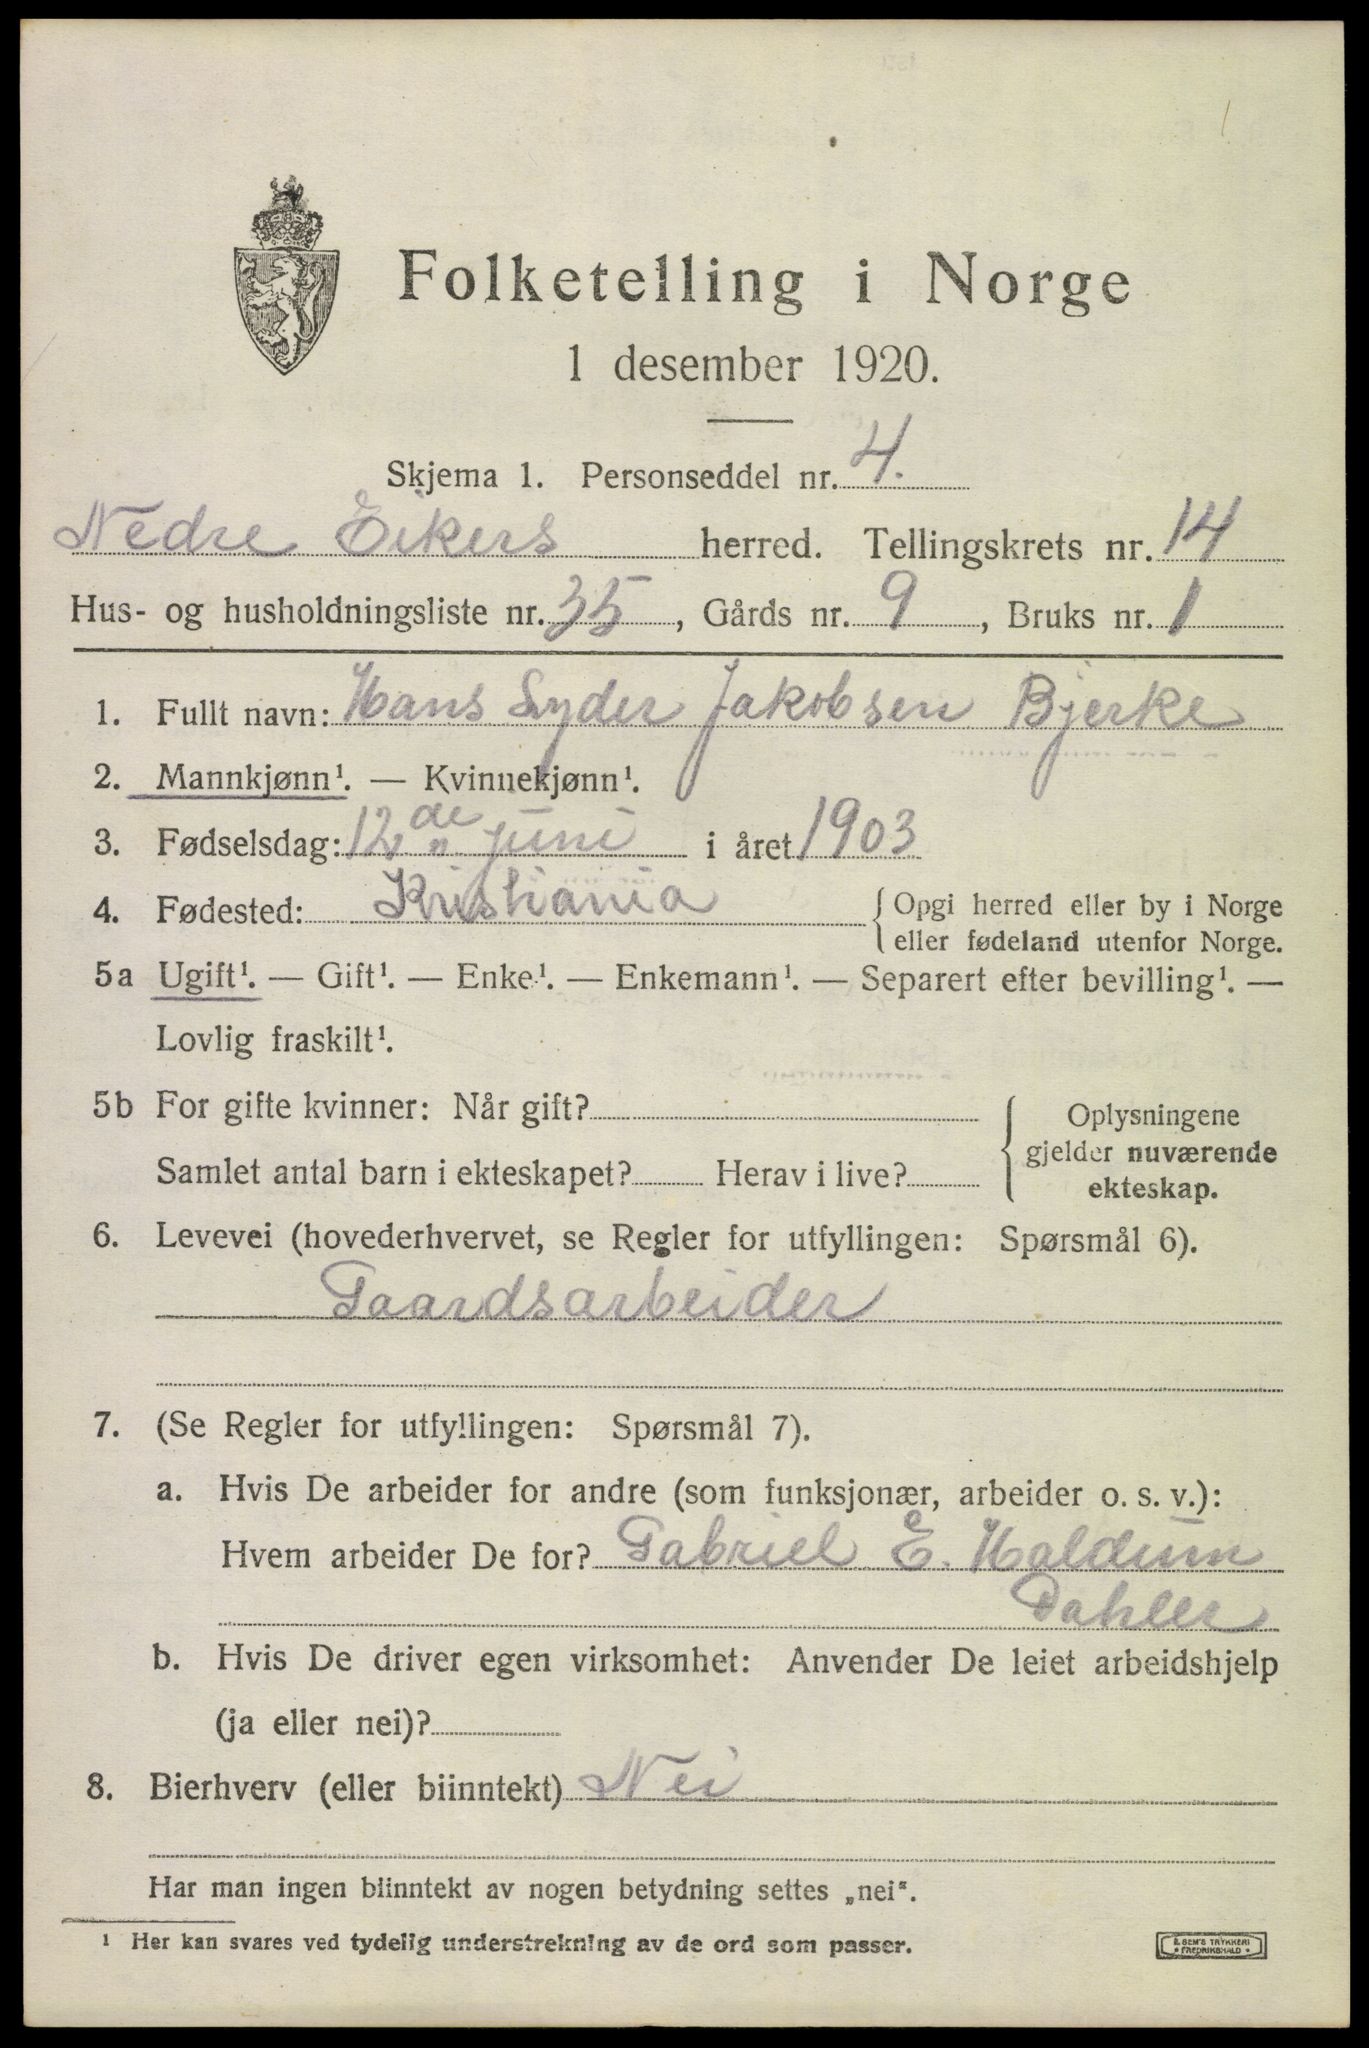 Folketelling i Norge
1 desember 1920.
Skjema 1. Personseddel nr. 4.
Nedre Eikers herred. Tellingskrets nr. 14
Hus- og husholdningsliste nr. 35, Gårds nr. 9, Bruks nr. 1
1. Fullt navn: Hans Lyder Jakobsen Bjerke
2. Mannkjønn¹. — Kvinnekjønn¹.
3. Fødselsdag: 12de juni i året 1903
4. Fødested: Kristiania {Opgi herred eller by i Norge
eller fødeland utenfor Norge.
5a Ugift¹. — Gift¹. — Enke¹. — Enkemann¹. — Separert efter bevilling¹. —
Lovlig fraskilt¹.
5b For gifte kvinner: Når gift? { Oplysningene
gjelder nuværende
Samlet antal barn i ekteskapet? Herav i live?
ekteskap.
6. Levevei (hovederhvervet, se Regler for utfyllingen: Spørsmål 6).
Gaardsarbeider
7. (Se Regler for utfyllingen: Spørsmål 7).
a. Hvis De arbeider for andre (som funksjonær, arbeider o. s. v.):
Hvem arbeider De for? Gabriel E. Haldum
Dahler
b. Hvis De driver egen virksomhet: Anvender De leiet arbeidshjelp
(ja eller nei)?
8. Bierhverv (eller biinntekt) Nei
Har man ingen biinntekt av nogen betydning settes „nei“.
¹ Her kan svares ved tydelig understrekning av de ord som passer.
E. SEM'S TRYKKERI
• FREDRIKSHALD •